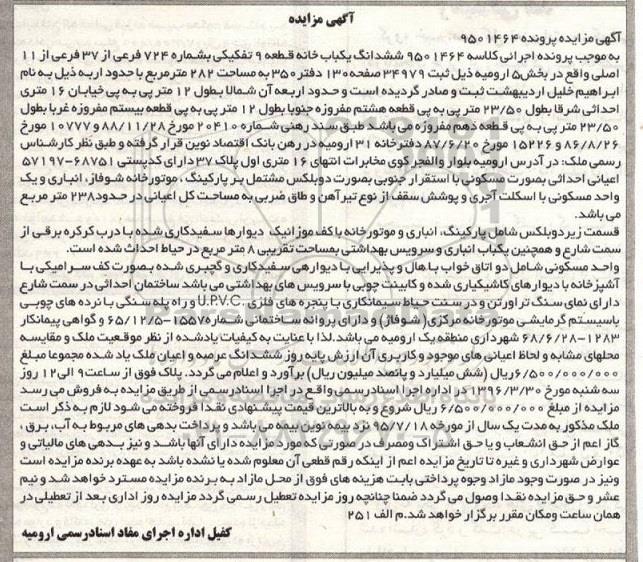 آگهی مزایده
آگهی مزایده پرونده ۹۵۰۱۴۶۴
به موجب پرونده اجرائی کلاسه ۹۵۰۱۴۶۴ ششدانگ یکباب خانه قطعه ۹ تفکیکی بشماره ۷۲۴ فرعی از ۳۷ فرعی از ۱۱
اصلی واقع در بخش۵ ارومیه ذیل ثبت ۳۴۹۷۹ صفحه۱۳۰ دفتر ۳۵۰ به مساحت ۲۸۲ مترمربع با حدود اربعه ذیل به نام
ابراهیم خلیل اردیبهشت ثبت و صادر گردیده است و حدود اربعه آن شمالا بطول ۱۲ متر پی به پی خیابان ۱۶ متری
احداثی شرقا بطول ۲۳/۵۰ متر پی به پی قطعه هشتم مفروزه جنوبا بطول ۱۲ متر پی به پی قطعه بیستم مفروزه غربا بطول
۲۳/۵۰ متر پی به پی قطعه دهم مفروزه می باشد طبق سند رهنی شماره ۲۰۴۱۰ مورخ ۸۸/۱۱/۲۸ و ۱۰۷۷۷ مورخ
۸۶/۸/۲۶ و ۱۵۲۲۶ مورخ ۸۷/۶/۲۰ دفترخانه ۳۱ ارومیه در رهن بانک اقتصاد نوین قرار گرفته و طبق نظر کارشناس
رسمی ملک: در آدرس ارومیه بلوار والفجر کوی مخابرات انتهای ۱۶ متری اول پلاک ۳۷ دارای کدپستی ۶۸۷۵۱-۵۷۱۹۷
اعیانی احداثی بصورت مسکونی با استقرار جنوبی بصورت دوبلکس مشتمل بر پارکینگ، موتورخانه شوفاژ، انباری و یک
واحد مسکونی با اسکلت آجری و پوشش سقف از نوع تیرآهن و طاق ضربی به مساحت کل اعیانی در حدود ۲۳۸ متر مربع
می باشد.
قسمت زیر دوبلکس شامل پارکینگ، انباری و موتورخانه با کف موزائیک، دیوارها سفیدکاری شده با درب کرکره برقی از
سمت شارع و همچنین یکباب انباری و سرویس بهداشتی بمساحت تقریبی ۸ متر مربع در حیاط احداث شده است.
واحد مسکونی شامل دو اتاق خواب با هال و پذیرایی با دیوارهای سفیدکاری و گچبری شده بصورت کف سرامیکی با
آشپزخانه با دیوارهای کاشیکاری شده و کابینت چوبی با سرویس های بهداشتی می باشد ساختمان احداثی در سمت شارع
دارای نمای سنگ تراورتن و در سمت حیاط سیمانکاری با پنجره های فلزی و U.P.V.C و راه پله سنگی با نرده های چوبی
باسیستم گرمایشی موتورخانه مرکزی(شوفاژ) و دارای پروانه ساختمانی شماره ۱۵۵۷-۶۵/۱۲/۵ و گواهی پیمانکار
۱۲۸۳-۶۸/۶/۲۸ شهرداری منطقه یک ارومیه می باشد. لذا با عنایت به کیفیات یادشده از نظر موقعیت ملک و مقایسه
محلهای مشابه و لحاظ اعیانی های موجود و کاربری آن ارزش پایه روز ششدانگ عرصه و اعیان ملک یاد شده مجموعا مبلغ
۶/۵۰۰/۰۰۰/۰۰۰ریال (شش میلیارد و پانصد میلیون ریال) برآورد و اعلام می گردد. پلاک فوق از ساعت ۹ الی۱۲ روز
سه شنبه مورخ ۱۳۹۶/۳/۳۰ در اداره اجرا اسنادرسمی واقع در اجرا اسنادرسمی از طریق مزایده به فروش می رسد
مزایده از مبلغ ۶/۵۰۰/۰۰۰/۰۰۰ ریال شروع و به بالاترین قیمت پیشنهادی نقدا فروخته می شود لازم به ذکر است
ملک مذکور به مدت یک سال از مورخه ۹۵/۷/۱۸ نزد بیمه نوین بیمه می باشد و پرداخت بدهی های مربوط به آب، برق،
گاز اعم از حق انشعاب و یا حق اشتراک و مصرف در صورتی که مورد مزایده دارای آنها باشد و نیز بدهی های مالیاتی و
عوارض شهرداری و غیره تا تاریخ مزایده اعم از اینکه رقم قطعی آن معلوم شده یا نشده باشد به عهده برنده مزایده است
ونیز در صورت وجود مازاد وجوه پرداختی بابت هزینه های فوق از محل مازاد به برنده مزایده مسترد خواهد شد و نیم
عشر و حق مزایده نقدا وصول می گردد ضمنا چنانچه روز مزایده تعطیل رسمی گردد مزایده روز اداری بعد از تعطیلی در
همان ساعت ومکان مقرر برگزار خواهد شد.م الف ۲۵۱
کفیل اداره اجرای مفاد اسنادرسمی ارومیه